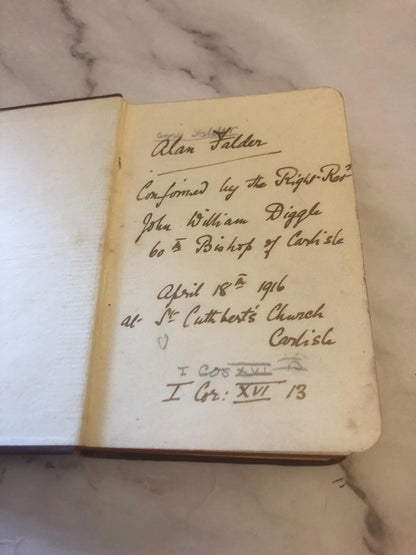 anny Falder
Alan Falder
Confirmed by the Right Revd
John William Diggle
60th Bishop of Carlisle
April 18th 1916
at St Cuthbert's Church
Carlisle
I COS XVI 13
I Cor: XVI 13